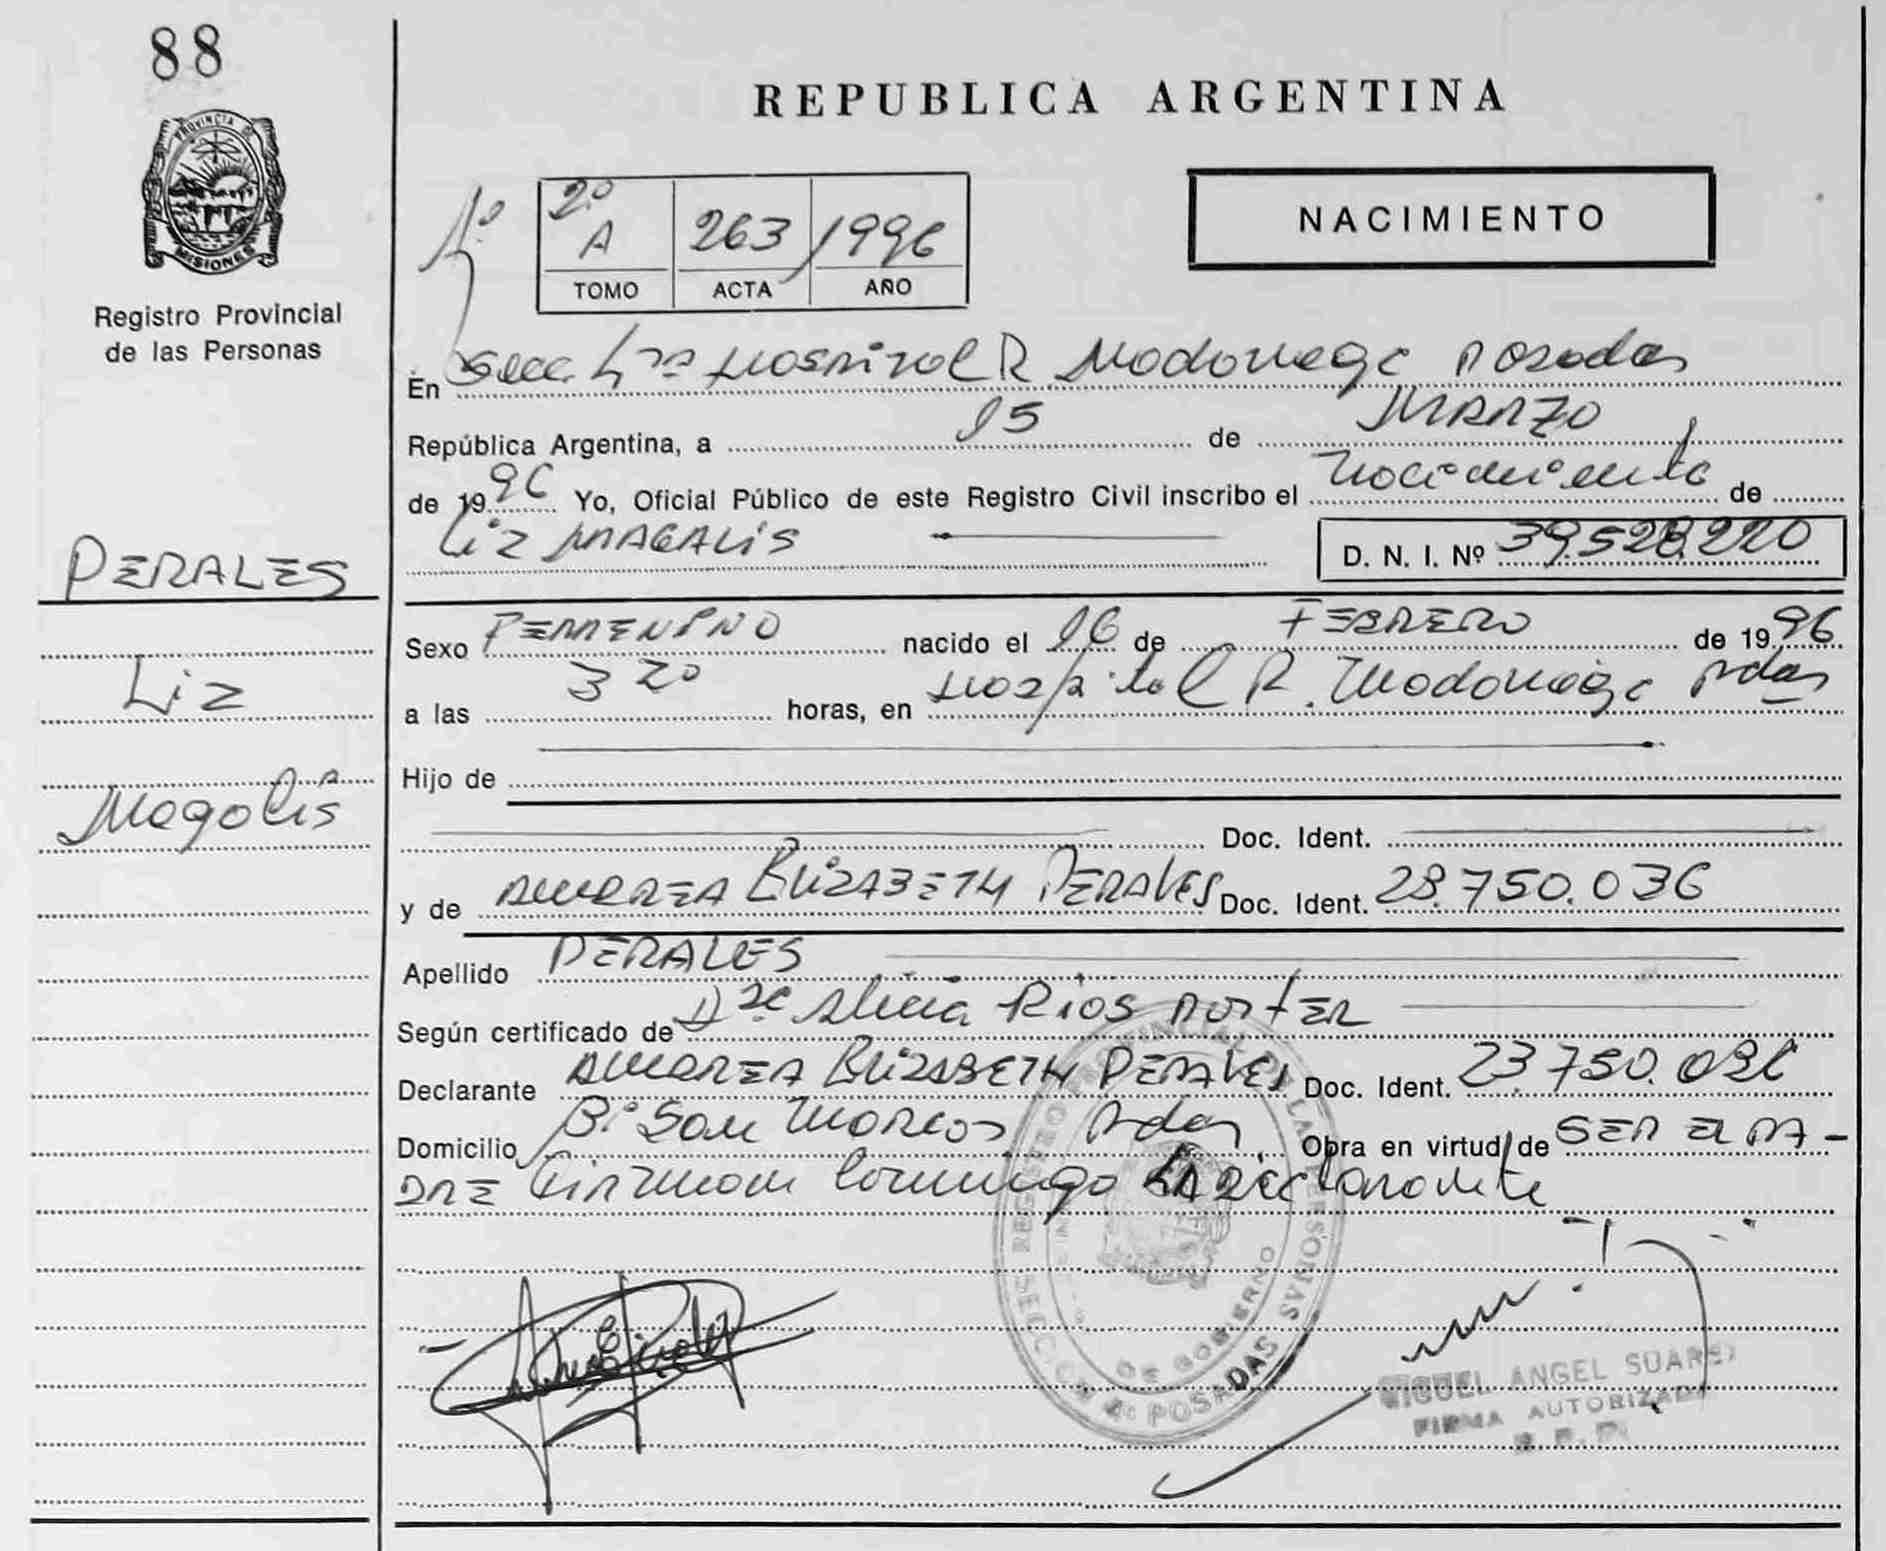 88
PROVINCIA DE
MISIONES
Registro Provincial
de las Personas
PERALES
Liz
Magalís
REPUBLICA ARGENTINA
2º
A 263 1996
TOMO ACTA AÑO
NACIMIENTO
En Secc. 4ta Hospital R Madariaga Posadas
República Argentina, a 15 de MARZO
de 1996 Yo, Oficial Público de este Registro Civil inscribo el Nacimiento de
Liz MAGALIS
D. N. I. Nº 39.528.220
Sexo FEMENINO nacido el 16 de FEBRERO de 1996
a las 3 20 horas, en Hospital R. Madariaga Pdas
Hijo de
Doc. Ident.
y de ANDREA ELIZABETH PERALES Doc. Ident. 28.750.036
Apellido PERALES
Según certificado de Dra Alicia Rios PORTER
Declarante ANDREA ELIZABETH PERALES Doc. Ident.
Domicilio Bº San Marcos Pdas Obra en virtud de SER
LA declarante
REGISTRO PROVINCIAL DE LAS PERSONAS
SECCION 4º POSADAS
DE GOBIERNO
MIGUEL ANGEL SUAREZ
FIRMA AUTORIZADA